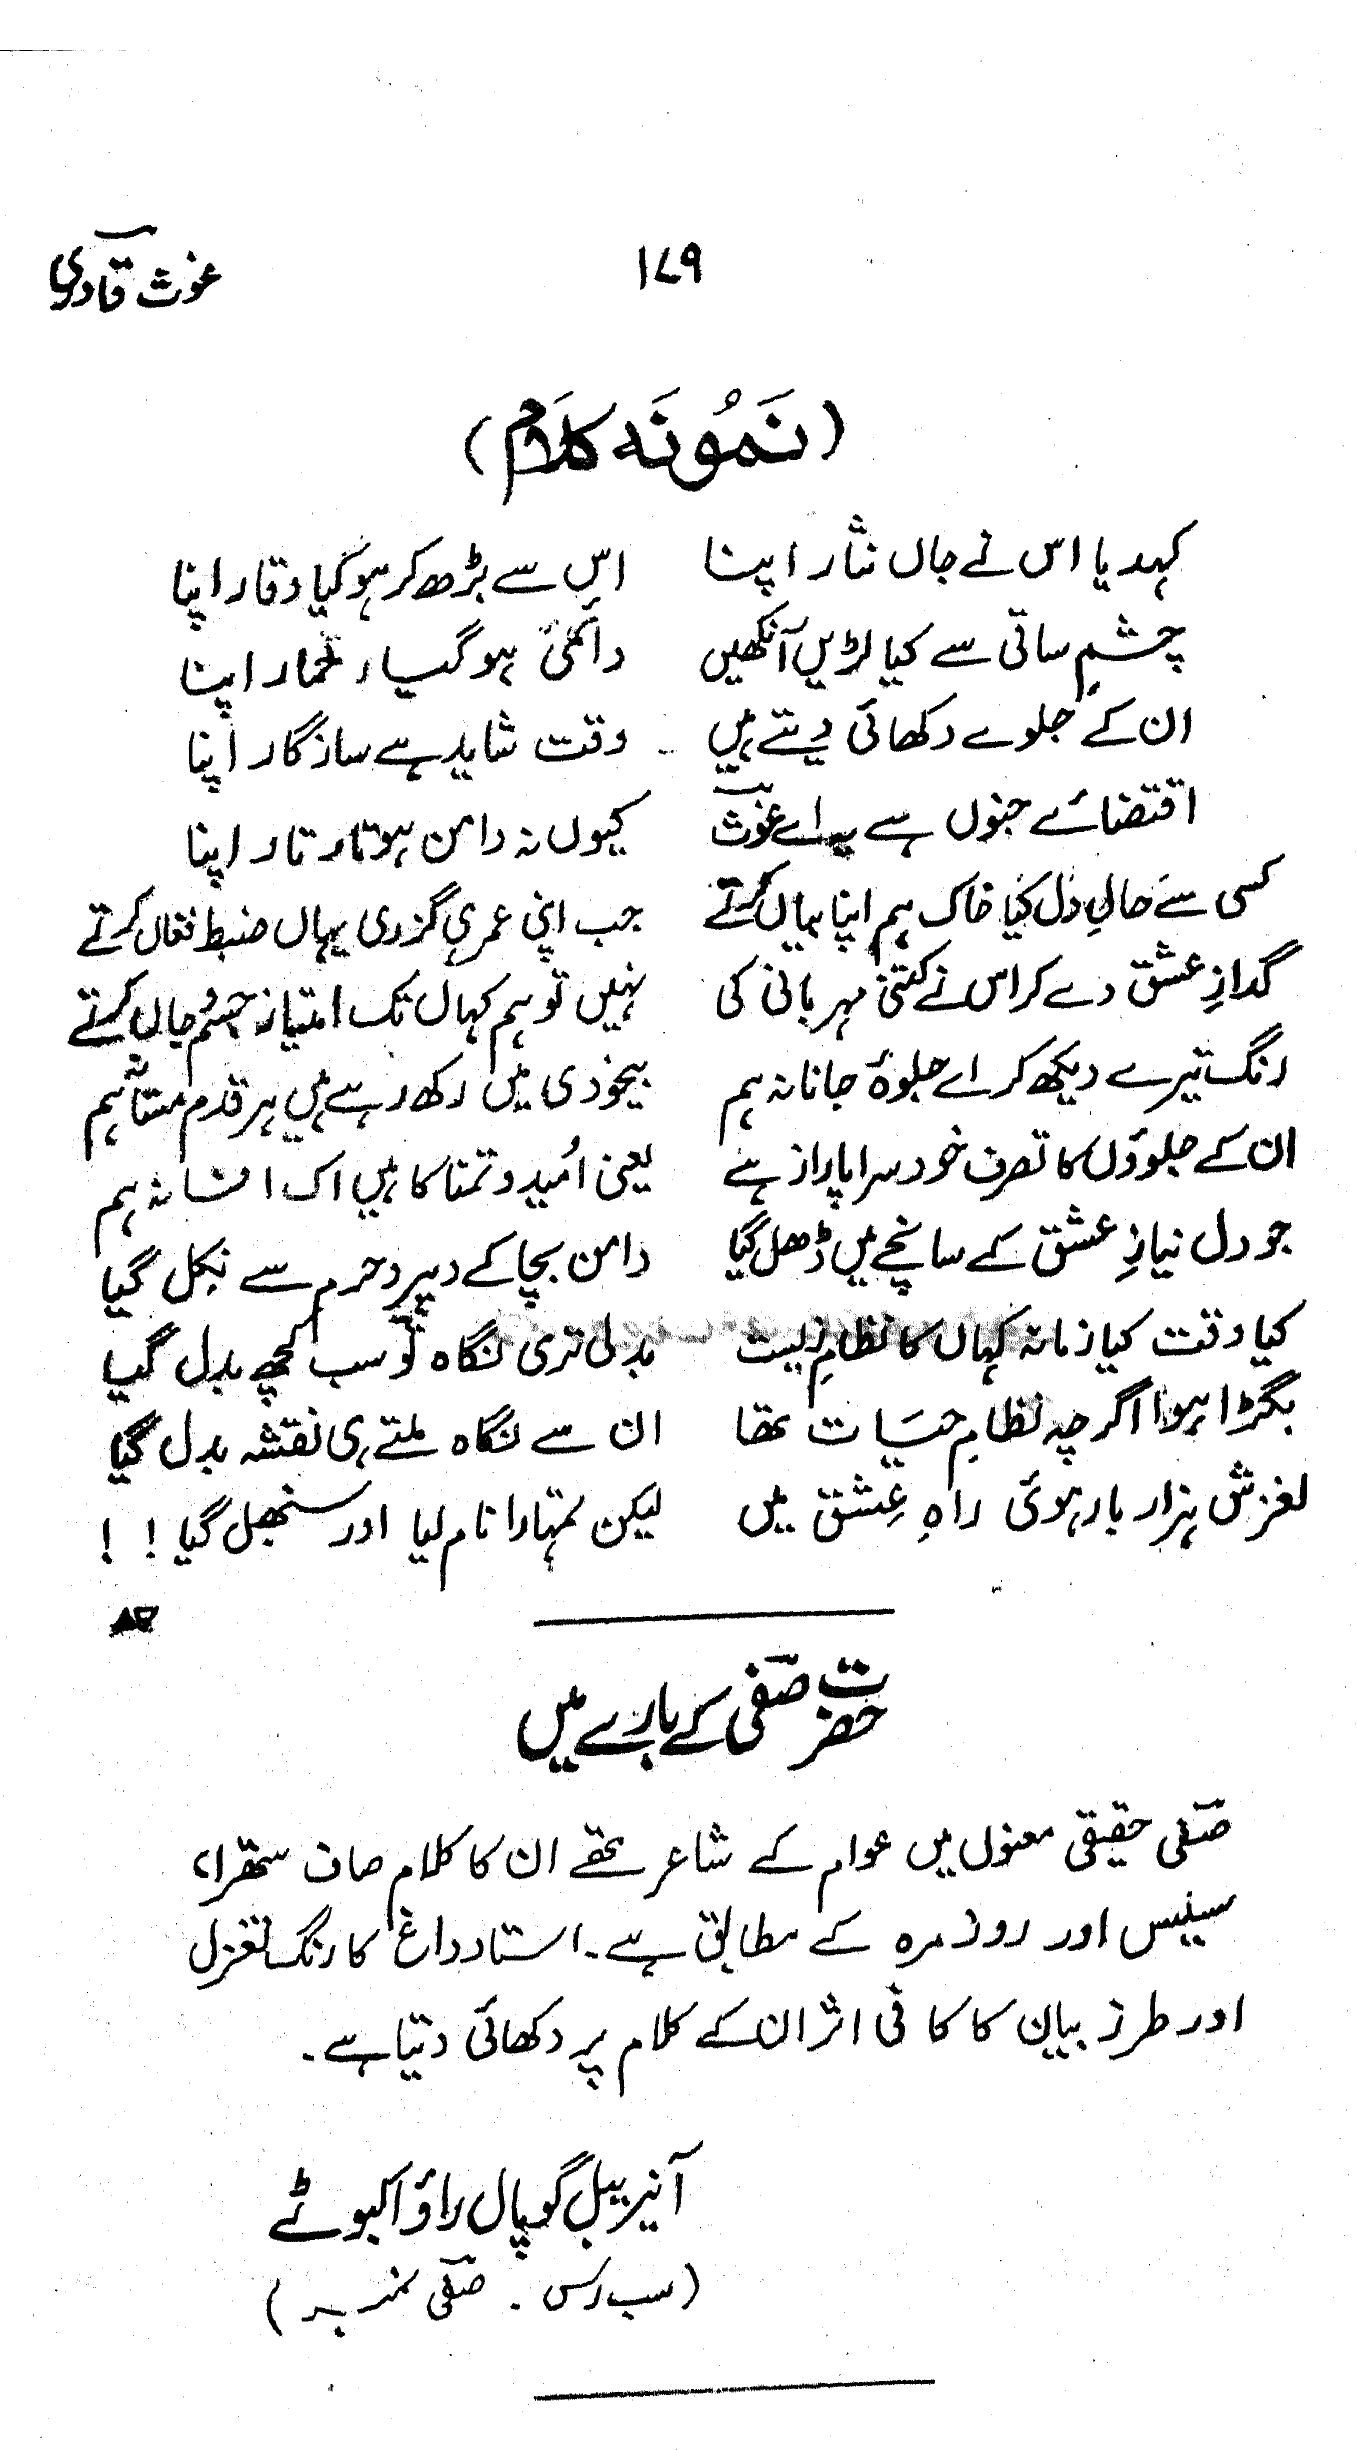 غوث قادری
۱۷۹
(نمونہ کلام)
کہدیا اس نے جاں نثار اپنا اس سے بڑھ کر ہو کیا وقار اپنا
چشمِ ساقی سے کیا لڑیں آنکھیں دائمی ہو گیا خمار اپنا
ان کے جلوے دکھائی دیتے ہیں وقت شاید ہے سازگار اپنا
اقتضائے جنوں ہے یہ اے غوث کیوں نہ دامن ہو تار تار اپنا
کسی سے حالِ دل کیا خاک ہم اپنا بیاں کرتے جب اپنی عمر ہی گزری یہاں ضبط فغاں کرتے
گدازِ عشق دے کر اس نے کتنی مہربانی کی نہیں تو ہم کہاں تک امتیاز جسم و جاں کرتے
رنگ تیرے دیکھ کر اے جلوۂ جانانہ ہم بیخودی میں رکھ رہے ہیں ہر قدم مستانہ ہم
ان کے جلوؤں کا تصرف خود سراپا راز ہے یعنی اُمید و تمنا کا ہیں اک افسانہ ہم
جو دل نیازِ عشق کے سانچے میں ڈھل گیا دامن بچا کے دیر و حرم سے نکل گیا
کیا وقت کیا زمانہ کہاں کا نظامِ زیست بدلی تری نگاہ تو سب کچھ بدل گیا
بگڑا ہوا اگرچہ نظامِ حیات تھا ان سے نگاہ ملتے ہی نقشہ بدل گیا
لغزش ہزار بار ہوئی راہِ عشق میں لیکن تمہارا نام لیا اور سنبھل گیا ! !
حضرت صفی کے بارے میں
صفی حقیقی معنوں میں عوام کے شاعر تھے ان کا کلام صاف ستھرا،
سلیس اور روزمرہ کے مطابق ہے۔ استاد داغ کا رنگ تغزل
اور طرز بیان کا کافی اثر ان کے کلام پر دکھائی دیتا ہے۔
آنریبل گوپال راؤ اکبوٹے
(سب رس ۔ صفی نمبر)